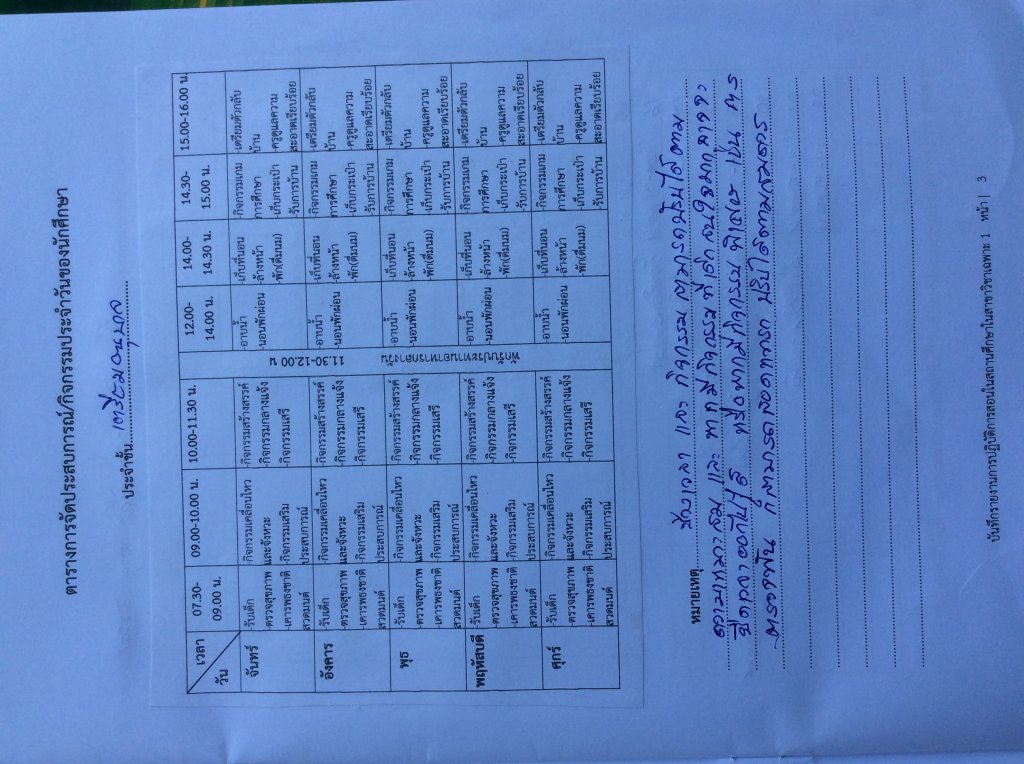 ตารางการจัดประสบการณ์/กิจกรรมประจำวันของนักศึกษา
ประจำชั้น เตรียมอนุบาล
เวลา
วัน
07.30-
09.00 น.
09.00-10.00 น.
10.00-11.30 น.
12.00-
14.00 น.
14.00-
14.30 น.
14.30-
15.00 น.
15.00-16.00 น.
จันทร์
-รับเด็ก
-ตรวจสุขภาพ
-เคารพธงชาติ
สวดมนต์
-กิจกรรมเคลื่อนไหว
และจังหวะ
-กิจกรรมเสริม
ประสบการณ์
-กิจกรรมสร้างสรรค์
-กิจกรรมกลางแจ้ง
-กิจกรรมเสรี
พักรับประทานอาหารกลางวัน
11.30-12.00 น
-อาบน้ำ
-นอนพักผ่อน
-เก็บที่นอน
-ล้างหน้า
-พัก(ดื่มนม)
-กิจกรรมเกม
การศึกษา
-เก็บกระเป๋า
-รับการบ้าน
-เตรียมตัวกลับ
บ้าน
-ครูดูแลความ
สะอาดเรียบร้อย
อังคาร
-รับเด็ก
-ตรวจสุขภาพ
-เคารพธงชาติ
สวดมนต์
-กิจกรรมเคลื่อนไหว
และจังหวะ
-กิจกรรมเสริม
ประสบการณ์
-กิจกรรมสร้างสรรค์
-กิจกรรมกลางแจ้ง
-กิจกรรมเสรี
-อาบน้ำ
-นอนพักผ่อน
-เก็บที่นอน
-ล้างหน้า
-พัก(ดื่มนม)
-กิจกรรมเกม
การศึกษา
-เก็บกระเป๋า
-รับการบ้าน
-เตรียมตัวกลับ
บ้าน
-ครูดูแลความ
สะอาดเรียบร้อย
พุธ
-รับเด็ก
-ตรวจสุขภาพ
-เคารพธงชาติ
สวดมนต์
-กิจกรรมเคลื่อนไหว
และจังหวะ
-กิจกรรมเสริม
ประสบการณ์
-กิจกรรมสร้างสรรค์
-กิจกรรมกลางแจ้ง
-กิจกรรมเสรี
-อาบน้ำ
-นอนพักผ่อน
-เก็บที่นอน
-ล้างหน้า
-พัก(ดื่มนม)
-กิจกรรมเกม
การศึกษา
-เก็บกระเป๋า
-รับการบ้าน
-เตรียมตัวกลับ
บ้าน
-ครูดูแลความ
สะอาดเรียบร้อย
พฤหัสบดี
-รับเด็ก
-ตรวจสุขภาพ
-เคารพธงชาติ
สวดมนต์
-กิจกรรมเคลื่อนไหว
และจังหวะ
-กิจกรรมเสริม
ประสบการณ์
-กิจกรรมสร้างสรรค์
-กิจกรรมกลางแจ้ง
-กิจกรรมเสรี
-อาบน้ำ
-นอนพักผ่อน
-เก็บที่นอน
-ล้างหน้า
-พัก(ดื่มนม)
-กิจกรรมเกม
การศึกษา
-เก็บกระเป๋า
-รับการบ้าน
-เตรียมตัวกลับ
บ้าน
-ครูดูแลความ
สะอาดเรียบร้อย
ศุกร์
-รับเด็ก
-ตรวจสุขภาพ
-เคารพธงชาติ
สวดมนต์
-กิจกรรมเคลื่อนไหว
และจังหวะ
-กิจกรรมเสริม
ประสบการณ์
-กิจกรรมสร้างสรรค์
-กิจกรรมกลางแจ้ง
-กิจกรรมเสรี
-อาบน้ำ
-นอนพักผ่อน
-เก็บที่นอน
-ล้างหน้า
-พัก(ดื่มนม)
-กิจกรรมเกม
การศึกษา
-เก็บกระเป๋า
-รับการบ้าน
-เตรียมตัวกลับ
บ้าน
-ครูดูแลความ
สะอาดเรียบร้อย
หมายเหตุ ช่วงเวลา และ กิจกรรม สามารถปรับได้ตาม
ความเหมาะสม และ หากมีกิจกรรม ที่เด็กสนใจมากอาจจะ
ยืดเวลาออกไปได้ หรือหากมีกิจกรรม พิเศษ เช่น การ
ตรวจฟัน ก็สามารถสอดแทรก ปรับได้ตามสมควร
บันทึกรายงานการปฏิบัติการสอนในสถานศึกษาในสาขาวิชาเฉพาะ 1 หน้า | 3